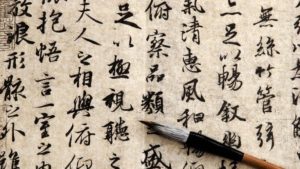 無絲竹管弦
足以暢敘幽
氣清惠風和暢
俯察品類盛
足以極視聽之
夫人之相與俯仰
抱悟言一室之內
放浪形骸之外雖